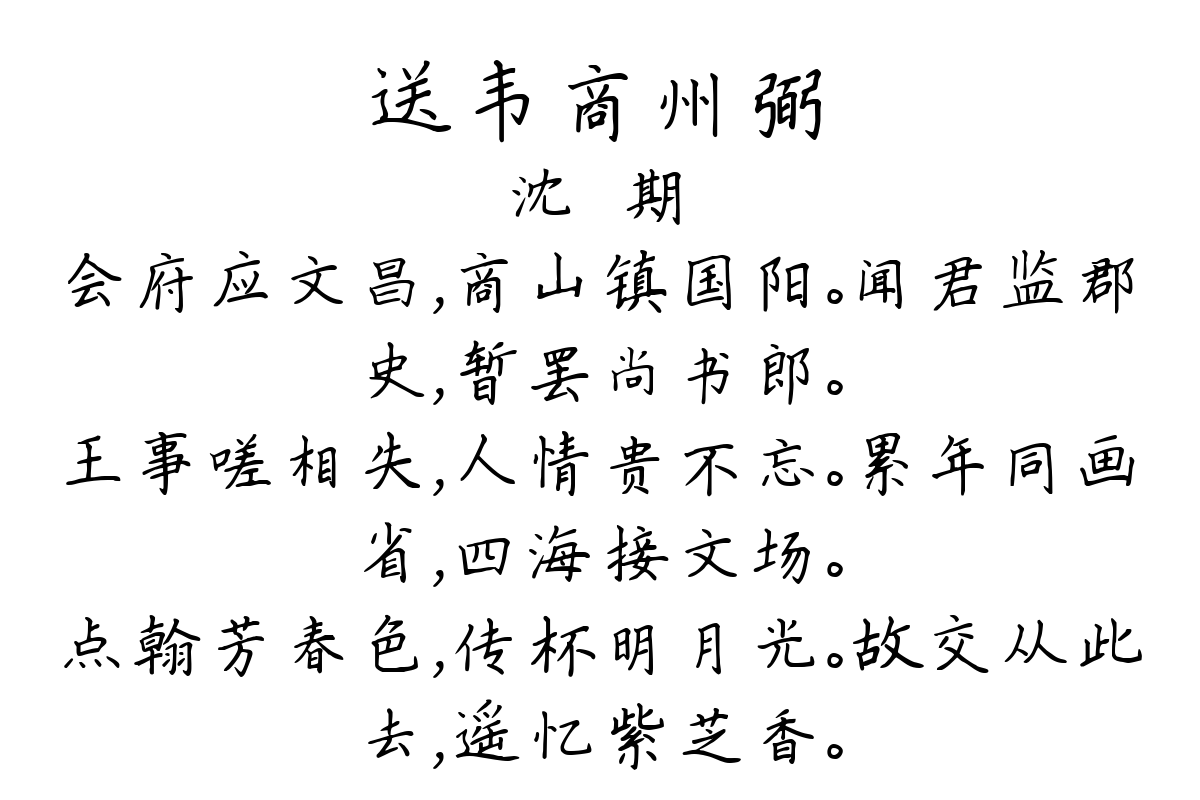 送韦商州弼
沈 期
会府应文昌,商山镇国阳。闻君监郡
史,暂罢尚书郎。
王事嗟相失,人情贵不忘。累年同画
省,四海接文场。
点翰芳春色,传杯明月光。故交从此
去,遥忆紫芝香。